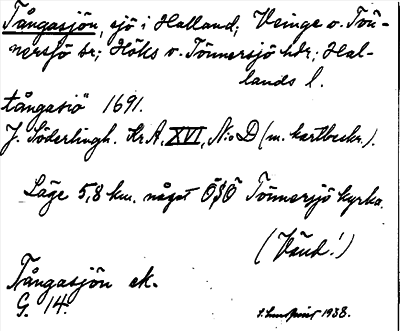 Tångasjön, sjö i Halland; Veinge o. Tön-
nersjö sr; Höks o. Tönnersjö hdr; Hal-
lands l.
tångasiö" 1691.
J. Söderlingh. KrA, XVI, N:o D (m. kartbeskr.).
Läge 5,8 km. något ÖSÖ Tönnersjö kyrka.
(Vänd!)
Tångasjön ek.
G. 14.
S. Lundqvist 1938.